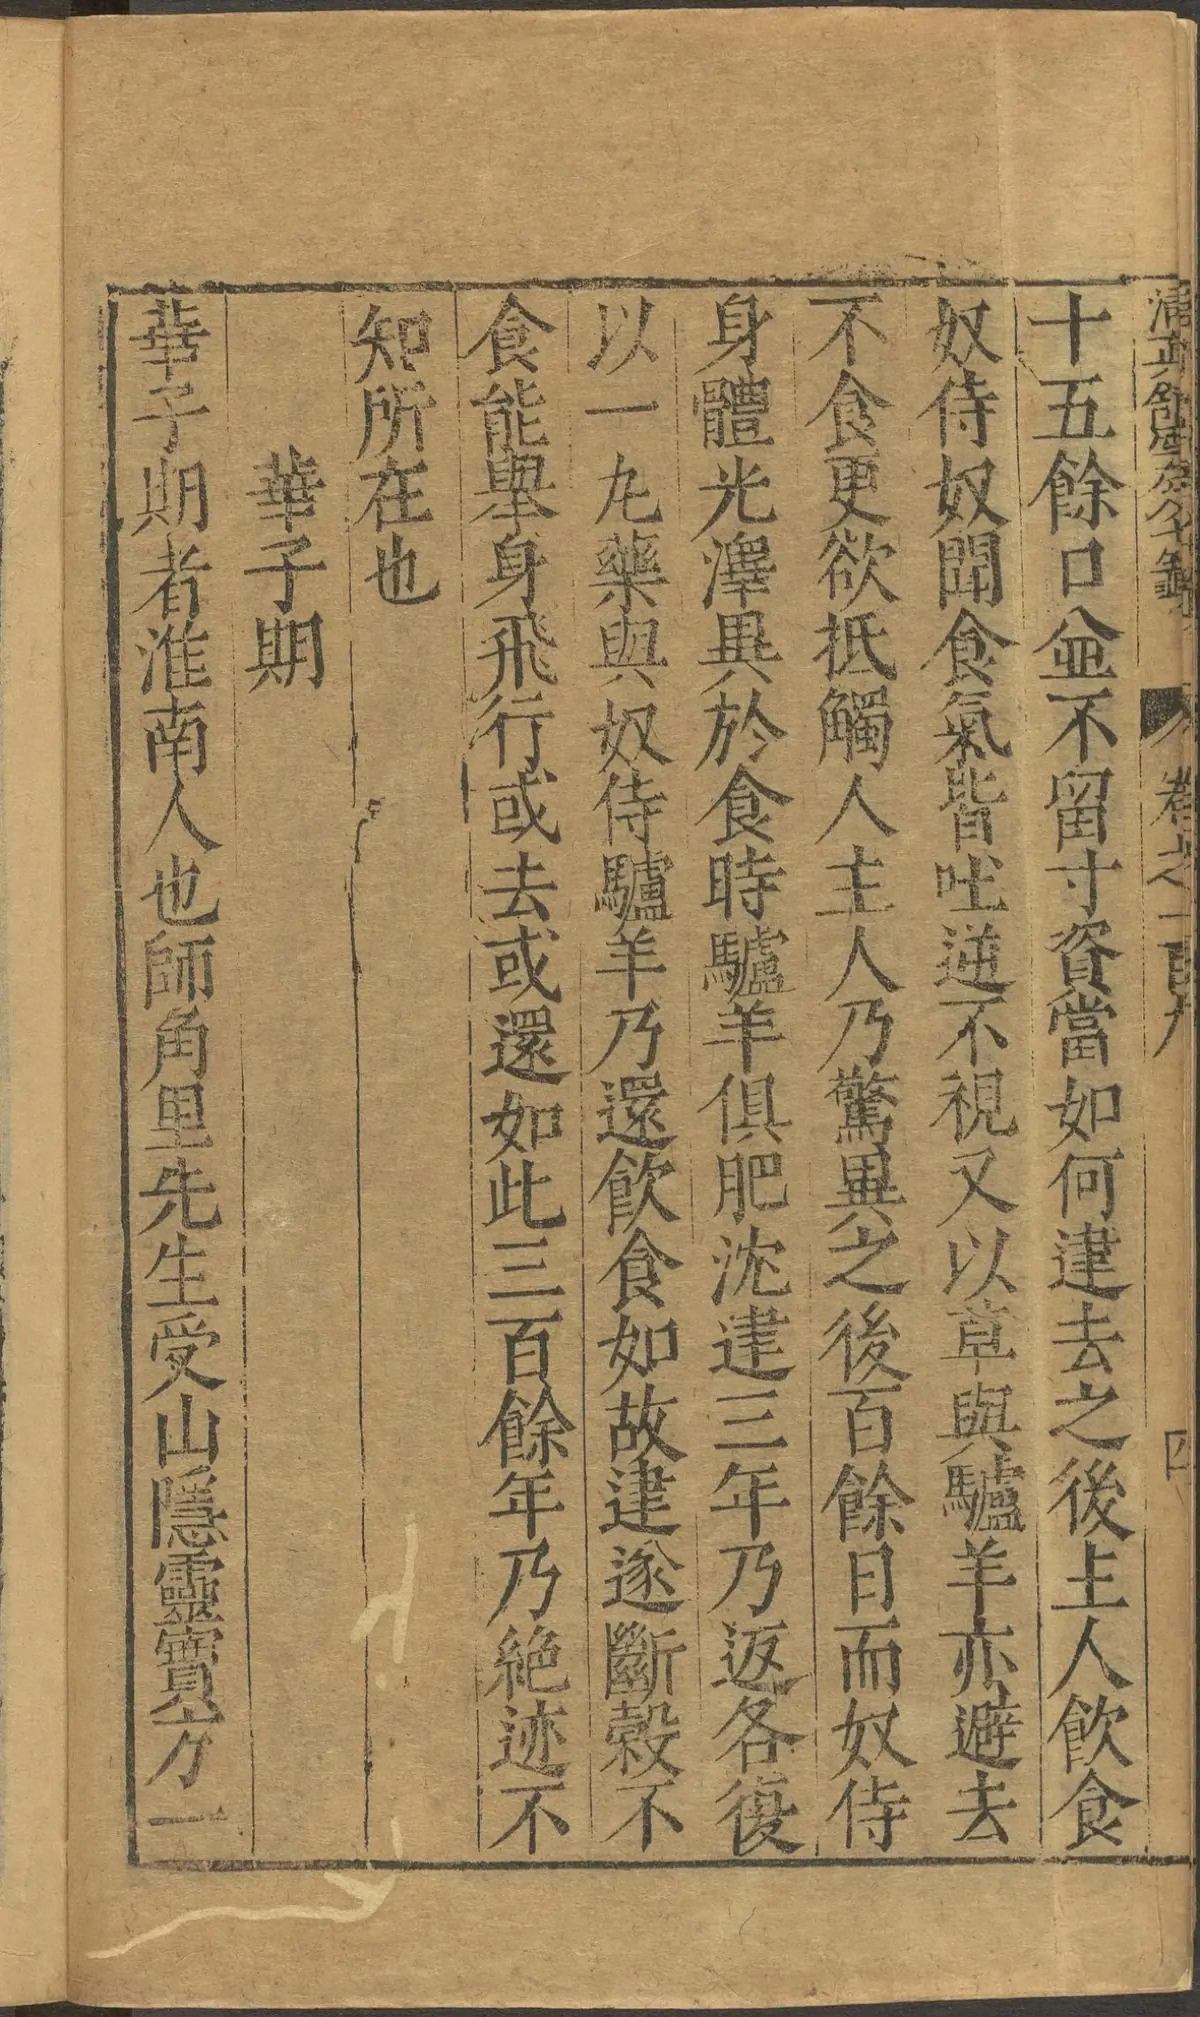 清真館雲笈七籤 卷之一百九 四
十五餘口並不留寸資當如何建去之後主人飲食
奴侍奴聞食氣皆吐逆不視又以草與驢羊亦避去
不食更欲抵觸人主人乃驚異之後百餘日而奴侍
身體光澤異於食時驢羊俱肥沈建三年乃返各復
以一丸藥與奴侍驢羊乃還飲食如故建遂斷穀不
食能舉身飛行或去或還如此三百餘年乃絶迹不
知所在也
華子期
華子期者淮南人也師角里先生受山隱靈寶方一